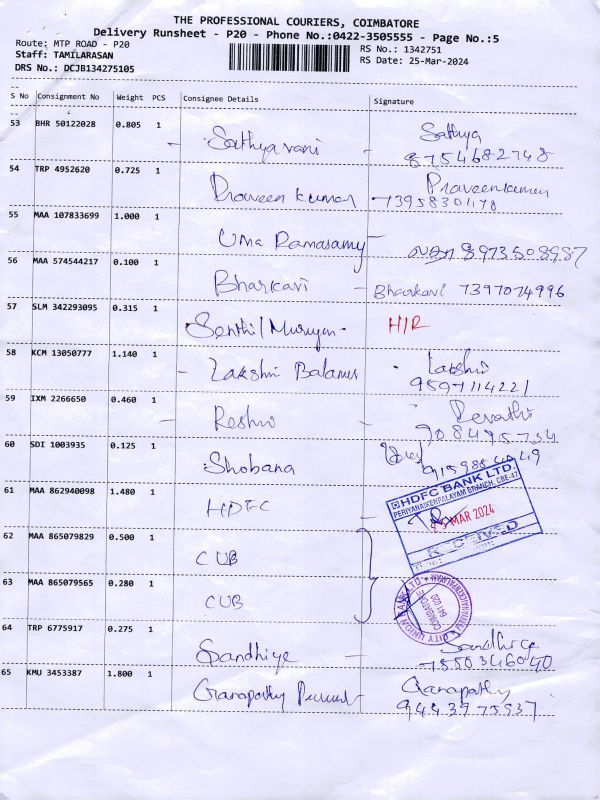 THE PROFESSIONAL COURIERS, COIMBATORE
Delivery Runsheet - P20 - Phone No.:0422-3505555 - Page No.:5
Route: MTP ROAD - P20
Staff: TAMILARASAN
DRS No.: DCJB134275105
RS No.: 1342751
RS Date: 25-Mar-2024
S No Consignment No Weight PCS Consignee Details Signature
53 BHR 50122028 0.805 1 Sathyavani Sathya
8754682748
54 TRP 4952620 0.725 1 Praveen kumar Praveenkumar
7395830478
55 MAA 107833699 1.000 1 Uma Ramasamy உமா 8973508987
56 MAA 574544217 0.100 1 Bharkavi Bhaarkavi 7397074996
57 SLM 342293095 0.315 1 Senthil Murugan H/R
58 KCM 13050777 1.140 1 Lakshmi Lakshmi
9597114221
59 IXM 2266650 0.460 1 Reshmi Revathi
60 SDI 1003935 0.125 1 Shobana
61 MAA 862940098 1.480 1 HDFC
HDFC BANK LTD.
PERIYANAICKENPALAYAM BRANCH, CBE-47
MAR 2024
RECEIVED
62 MAA 865079829 0.500 1 CUB
63 MAA 865079565 0.280 1 CUB
CITY UNION BANK LTD.
COIMBATORE
641 020
64 TRP 6775917 0.275 1 Sandhiya Sandhiya
65 KMU 3453387 1.800 1 Ganapathy Ganapathy